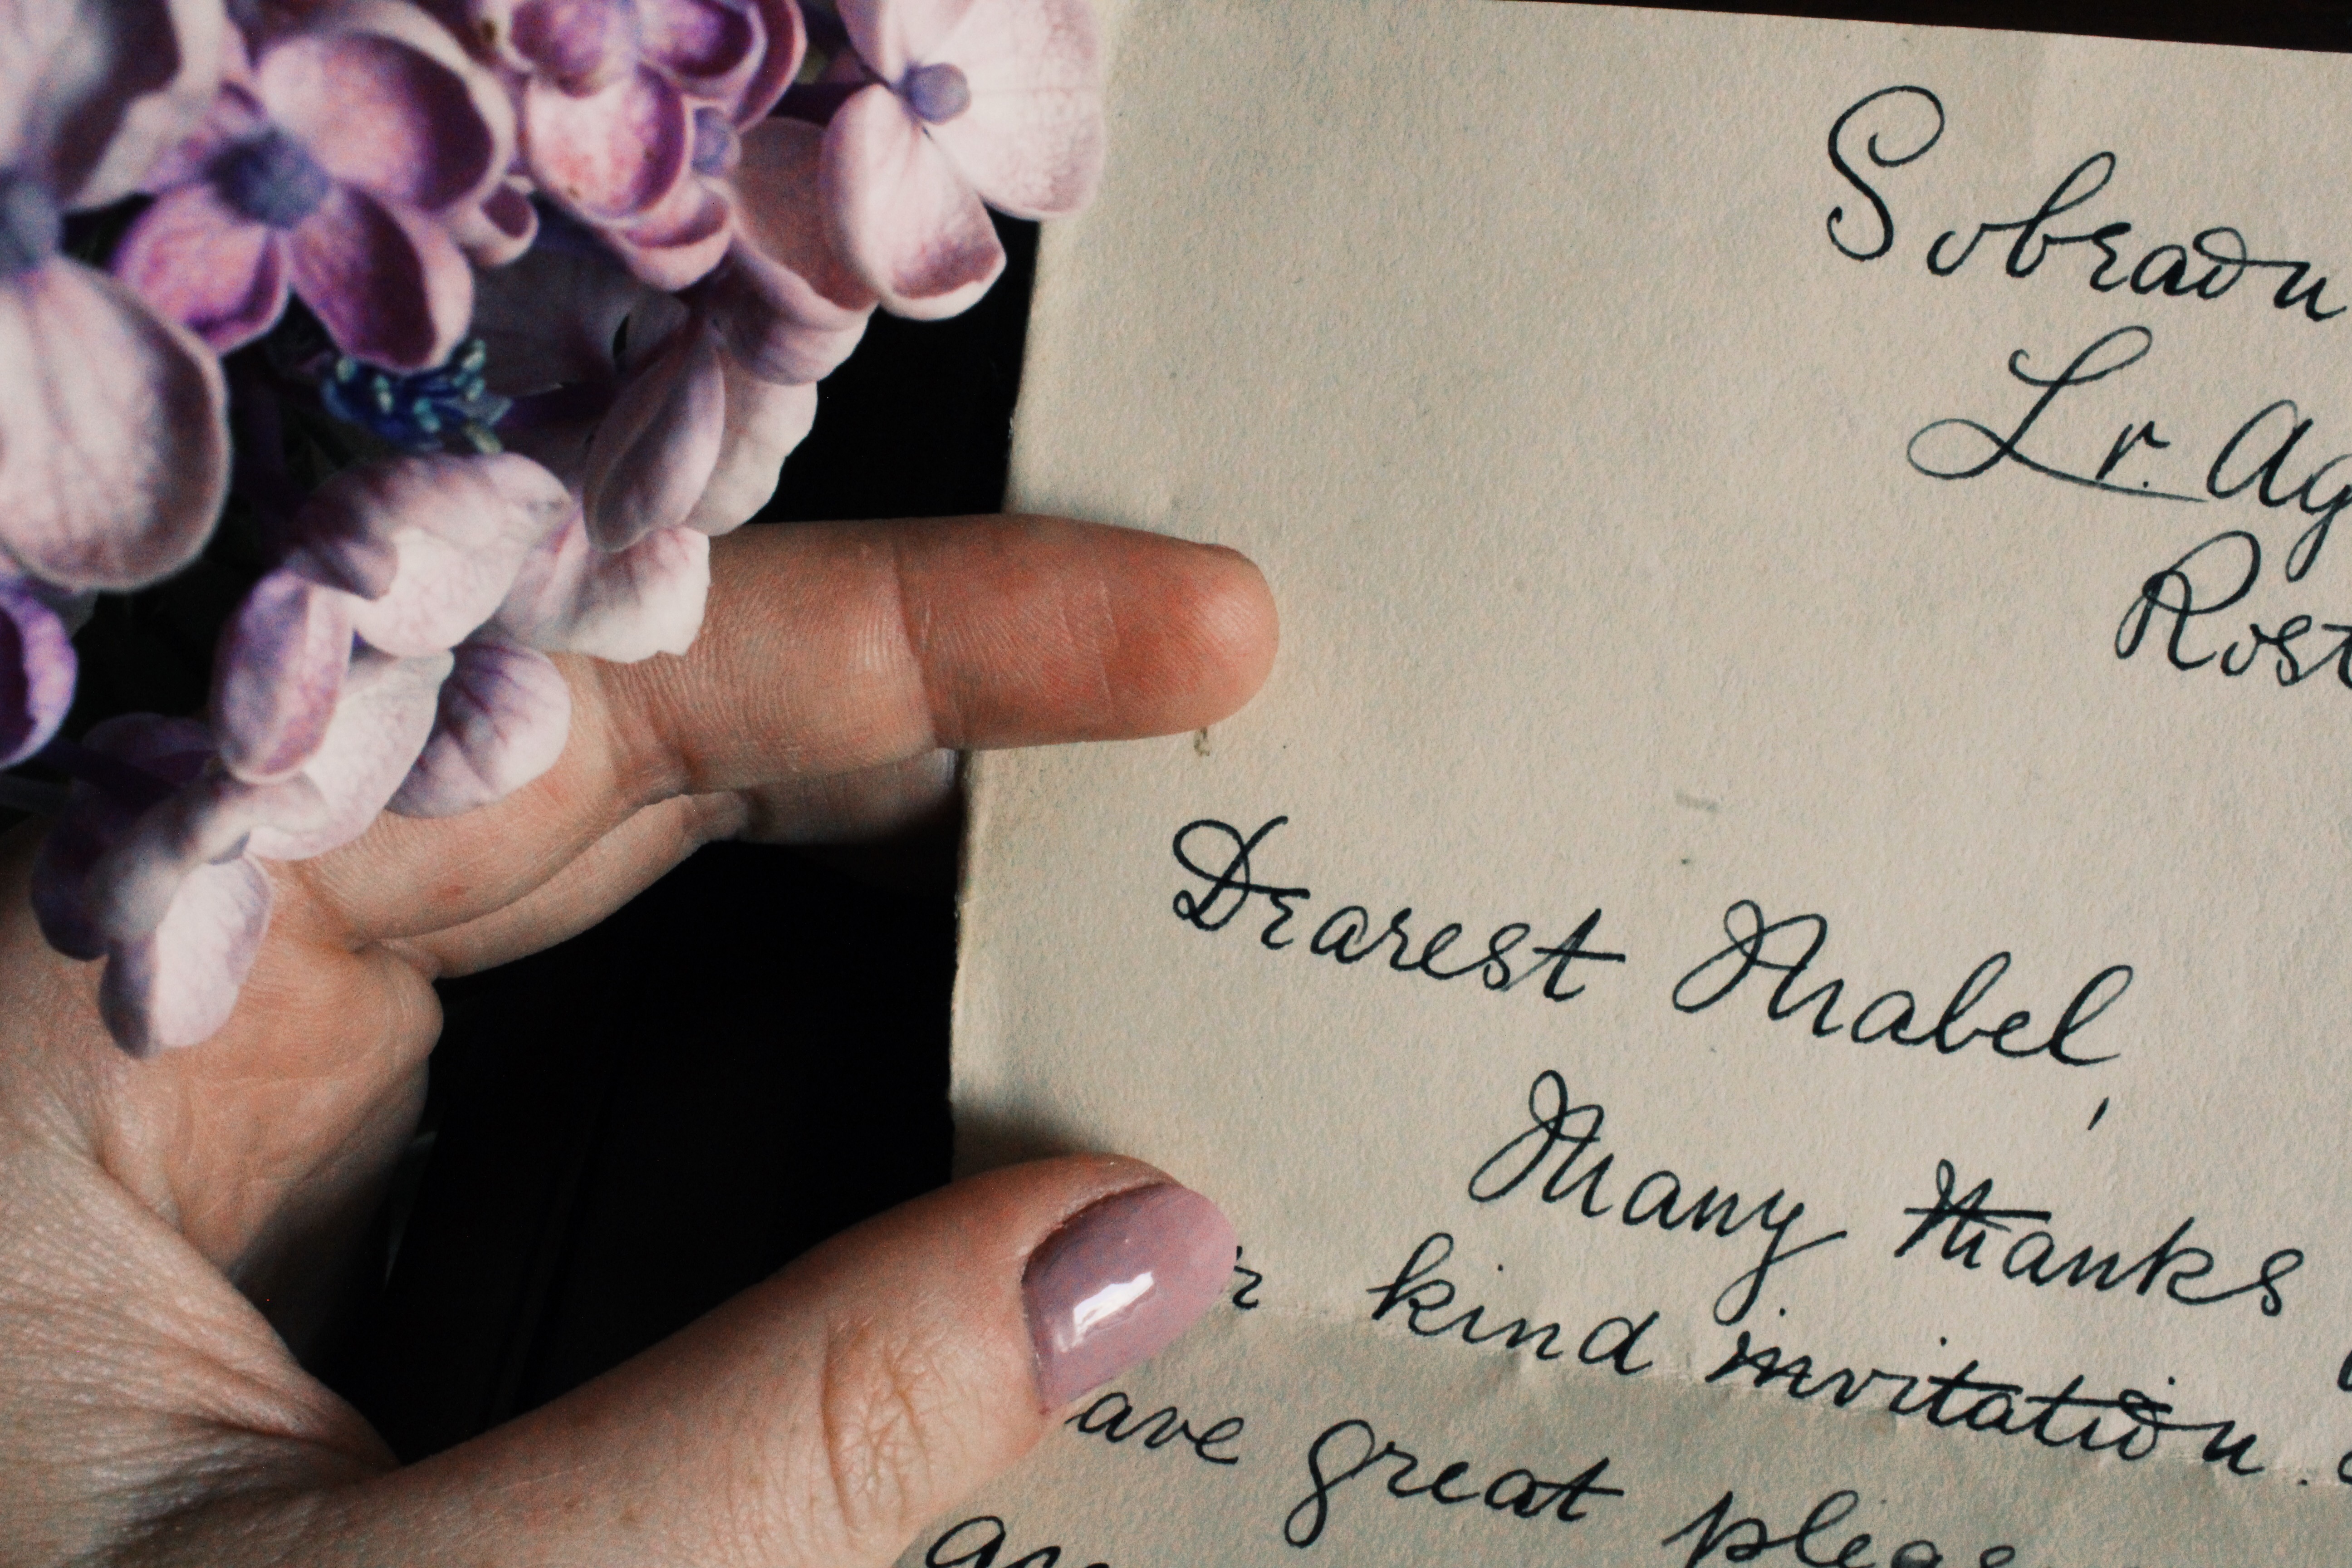 Sobraon
Lr. Ag
Rost
Dearest Mabel,
Many thanks
r kind invitation.
ave great pleas